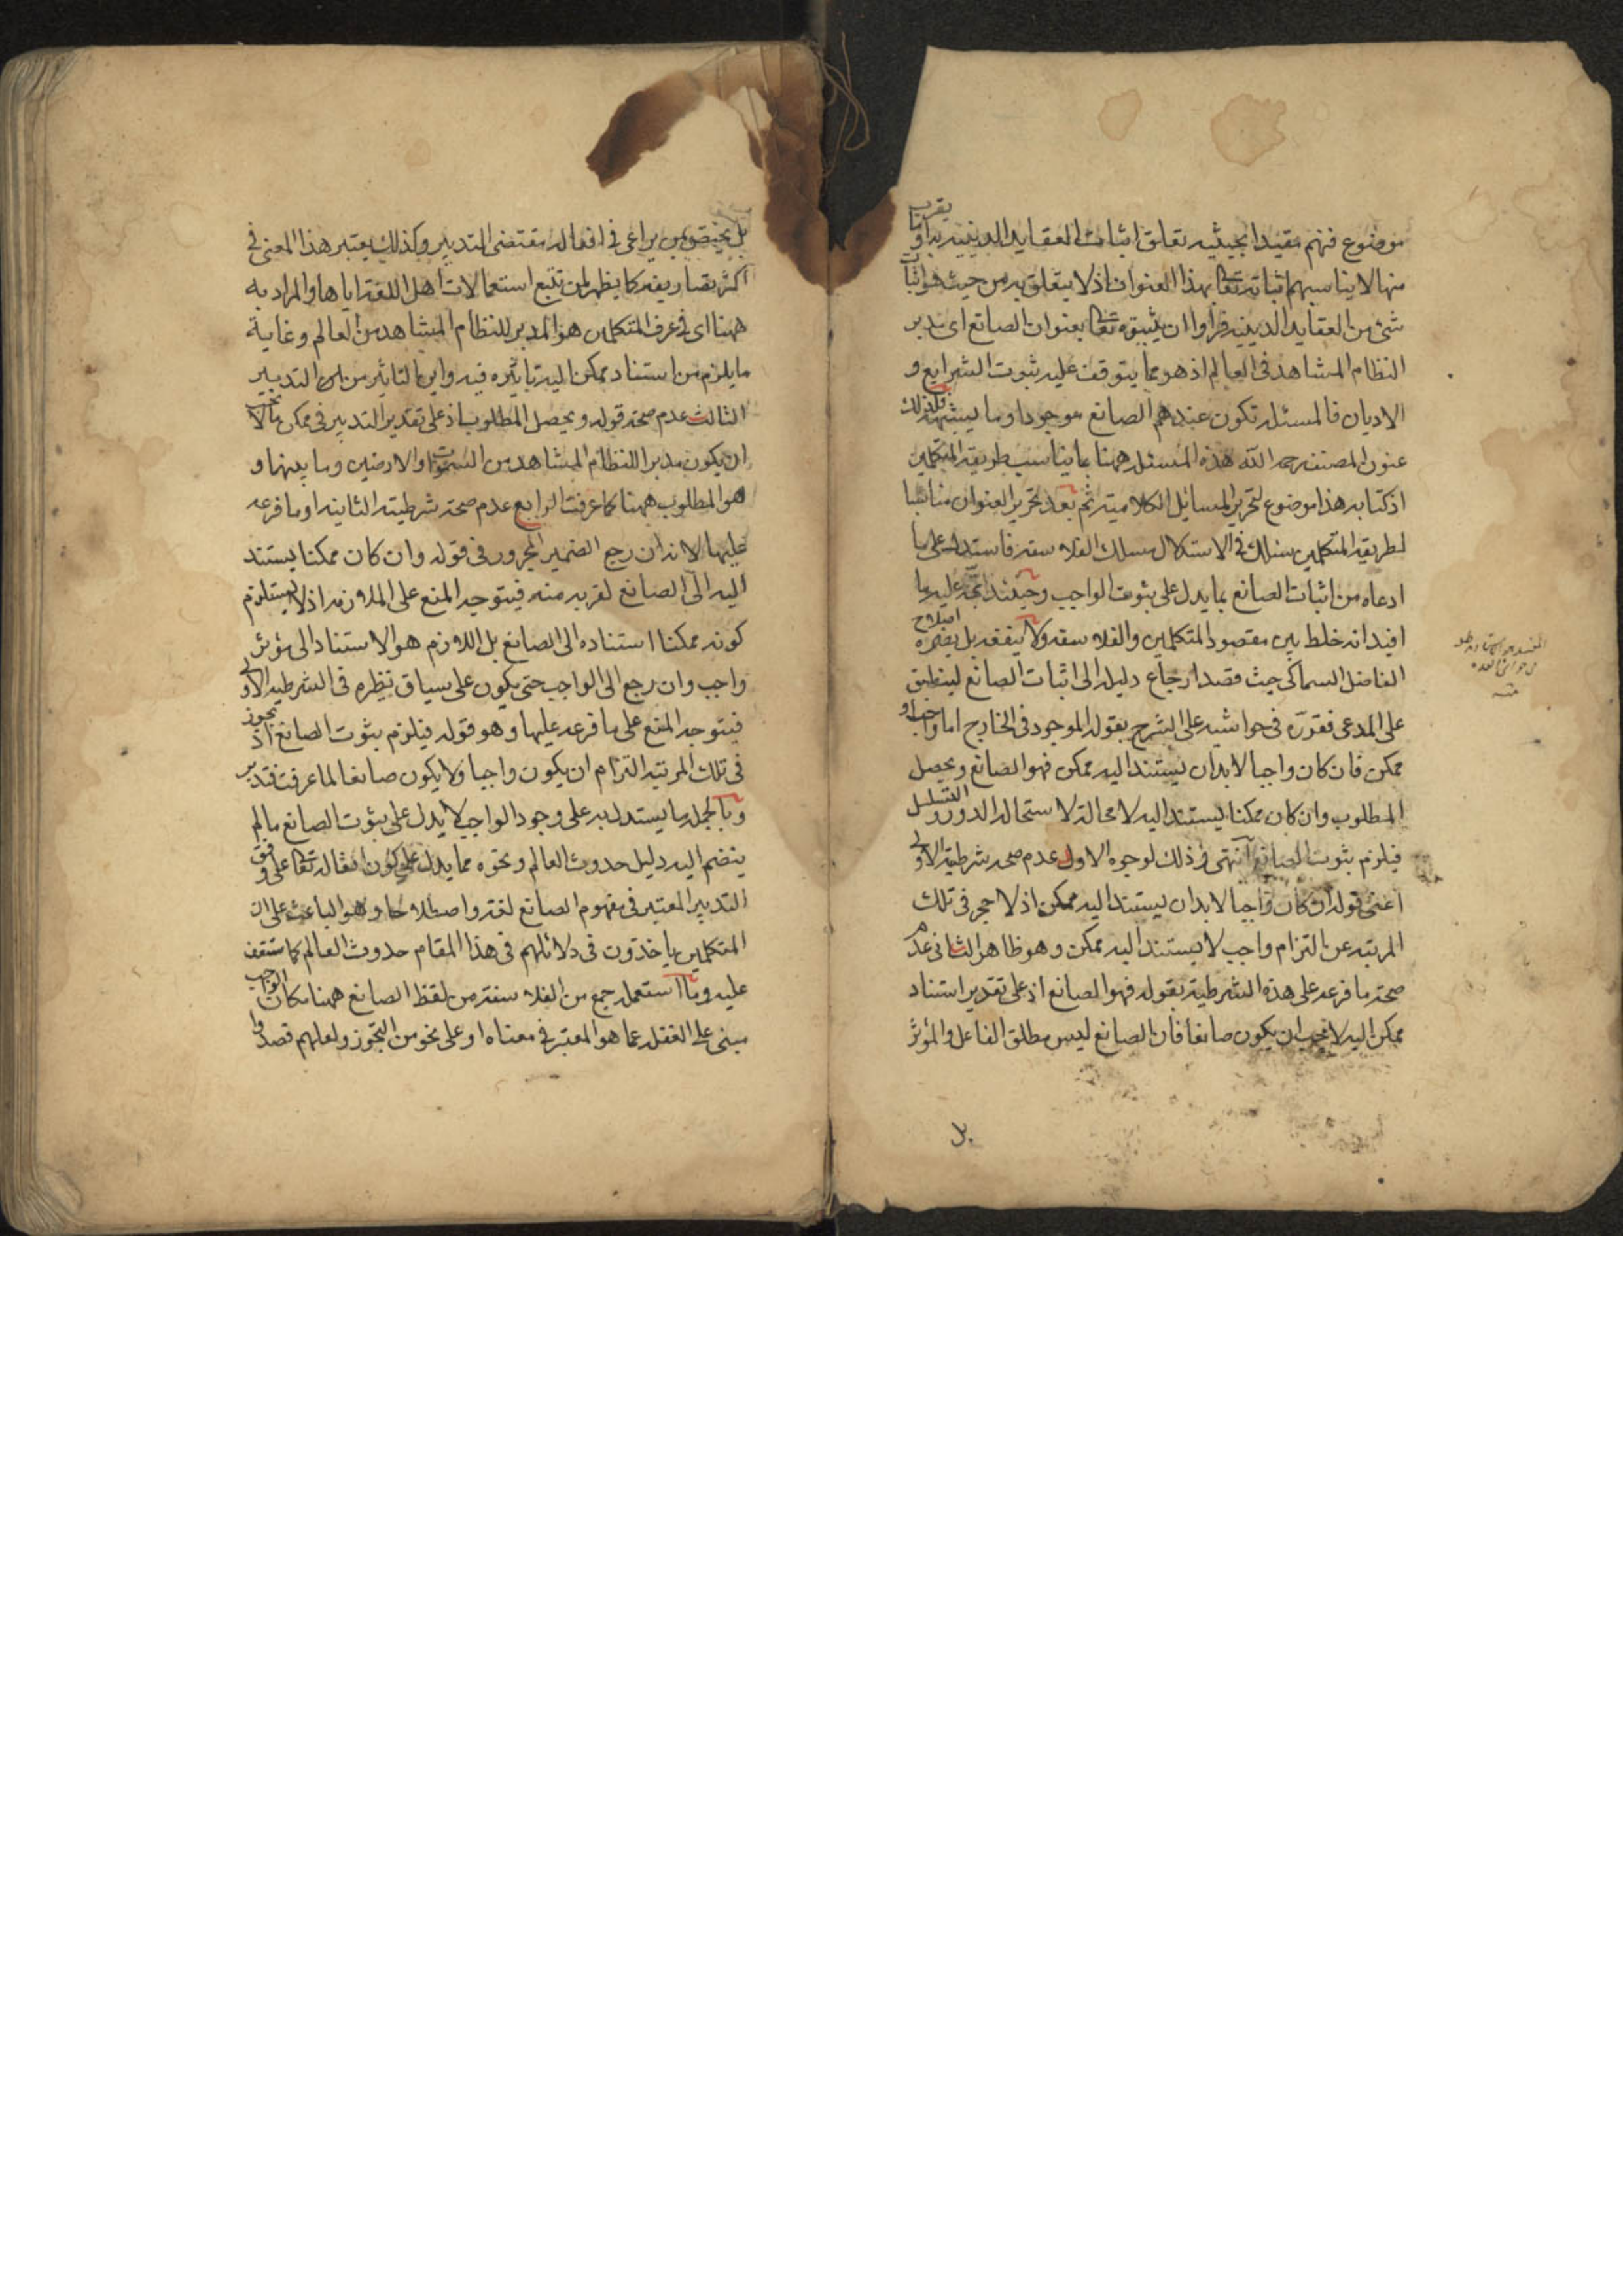 موضوع فنهم مقيدا بحيثيه تعلق اثبات العقايد الدينيه به او بما يقرب
منها لا يناسبهم اثباته تعالى بهذا العنوان اذ لا يتعلق به من حيث هو اثبات
شئ من العقايد الدينيه فراوا ان يثبتوه تعالى بعنوان الصانع اى مدبر
النظام المشاهد فى العالم اذ هو مما يتوقف عليه ثبوت الشرايع و
الاديان فالمسئله تكون عندهم الصانع موجود او ما يشبهه فلذلك
عنون المصنف رحمه الله هذه المسئله ههنا بما يناسب طريقه المتكلمين
اذ كتابه هذا موضوع لتحرير المسايل الكلاميه ثم بعد تحرير العنوان مناسبا
لطريقه المتكلمين سلك فى الاستدلال مسلك الفلاسفه فاستدل على ما
ادعاه من اثبات الصانع بما يدل على ثبوت الواجب وحينئذ اتجه عليه ما
افيد انه خلط بين مقصود المتكلمين والفلاسفه ولا ينفعه بل يضره اصلاح
الفاضل السماكى حيث قصد ارجاع دليله الى اثبات الصانع لينطبق
على المدعى فقرره فى حواشيه على الشرح بقوله الموجود فى الخارج اما واجب او
ممكن فان كان واجبا لابد ان يستند اليه ممكن فهو الصانع ويحصل
المطلوب وان كان ممكنا يستند اليه لا محالة لاستحاله الدور والتسلسل
فيلزم ثبوت الصانع انتهى وذلك لوجوه الاول عدم صحه شرطيته الاولى
اعنى قوله ان كان واجبا لابد ان يستند اليه ممكن اذ لا حجر فى تلك
المرتبه عن التزام واجب لا يستند اليه ممكن وهو ظاهر الثانى عدم
صحة ما فرعه على هذه الشرطية بقوله فهو الصانع اذ على تقدير استناد
ممكن اليه لا يجب ان يكون صانعا فان الصانع ليس مطلق الفاعل والمؤثر
بل
بل يختص بمن يراعى فى افعاله مقتضى التدبير وكذلك يعتبر هذا المعنى فى
اكثر تصاريفه كما يظهر لمن تتبع استعمالات اهل اللغة اياها والمراد به
ههنا اى فى عرف المتكلمين هو المدبر للنظام المشاهد من العالم وغاية
ما يلزم من استناد ممكن اليه تاثيره فيه واين التاثير من التدبير
الثالث عدم صحة قوله ويحصل المطلوب اذ على تقدير التدبير فى ممكن ما لا يجب
ان يكون مدبرا للنظام المشاهد من السموات والارضين وما بينها و
هو المطلوب ههنا كما عرفت الرابع عدم صحة شرطيته الثانيه او ما فرعه
عليها لانه ان رجع الضمير المجرور فى قوله وان كان ممكنا يستند
اليه الى الصانع لقربه منه فيتوجه المنع على الملازمه اذ لا يستلزم
كونه ممكنا استناده الى الصانع بل اللازم هو الاستناد الى مؤثر
واجب وان رجع الى الواجب حتى يكون على سياق نظيره فى الشرطيه الاولى
فيتوجه المنع على ما فرعه عليها وهو قوله فيلزم ثبوت الصانع اذ يجوز
فى تلك المرتبه التزام ان يكون واجبا ولا يكون صانعا لما عرفت فتدبر
وبالجمله ما يستدل به على وجود الواجب لا يدل على ثبوت الصانع ما لم
ينضم اليه دليل حدوث العالم ونحوه مما يدل على كون افعاله تعالى على وفق
التدبير المعتبر فى مفهوم الصانع لغة واصطلاحا وهو الباعث على ان
المتكلمين ياخذون فى دلائلهم فى هذا المقام حدوث العالم كما ستقف
عليه وما استعمله جمع من الفلاسفة من لفظ الصانع ههنا مكان الواجب
مبنى على الغفله عما هو المعتبر فى معناه او على نحو من التجوز ولعلهم قصدوا